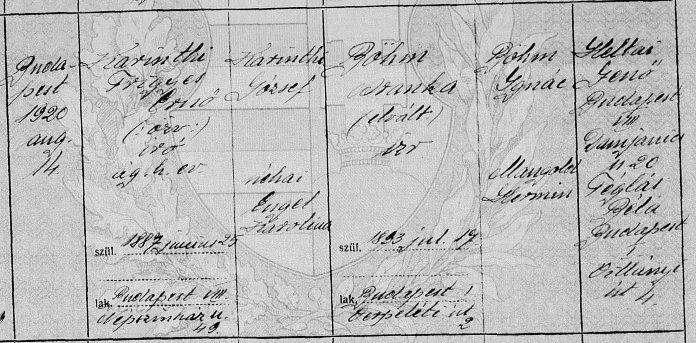 Buda-
pest
1920
aug.
14
Karinthi
Frigyes
Ernő
(:özv:)
író
ág. h. ev.
szül. 1887 junius 25
lak. Budapest VIII
Népszinház u.
49
Karinthi
József
néhai
Engel
Karolina
Böhm
Aranka
(elvált)
izr
szül. 1893 jul. 17
lak. Budapest I
Verpeléti út
2
Böhm
Ignác
Mangold
Hermin
Heltai
Jenő
Budapest
VIII
Damjanich
u 20
Téglás
Béla
Budapest
I
út 4